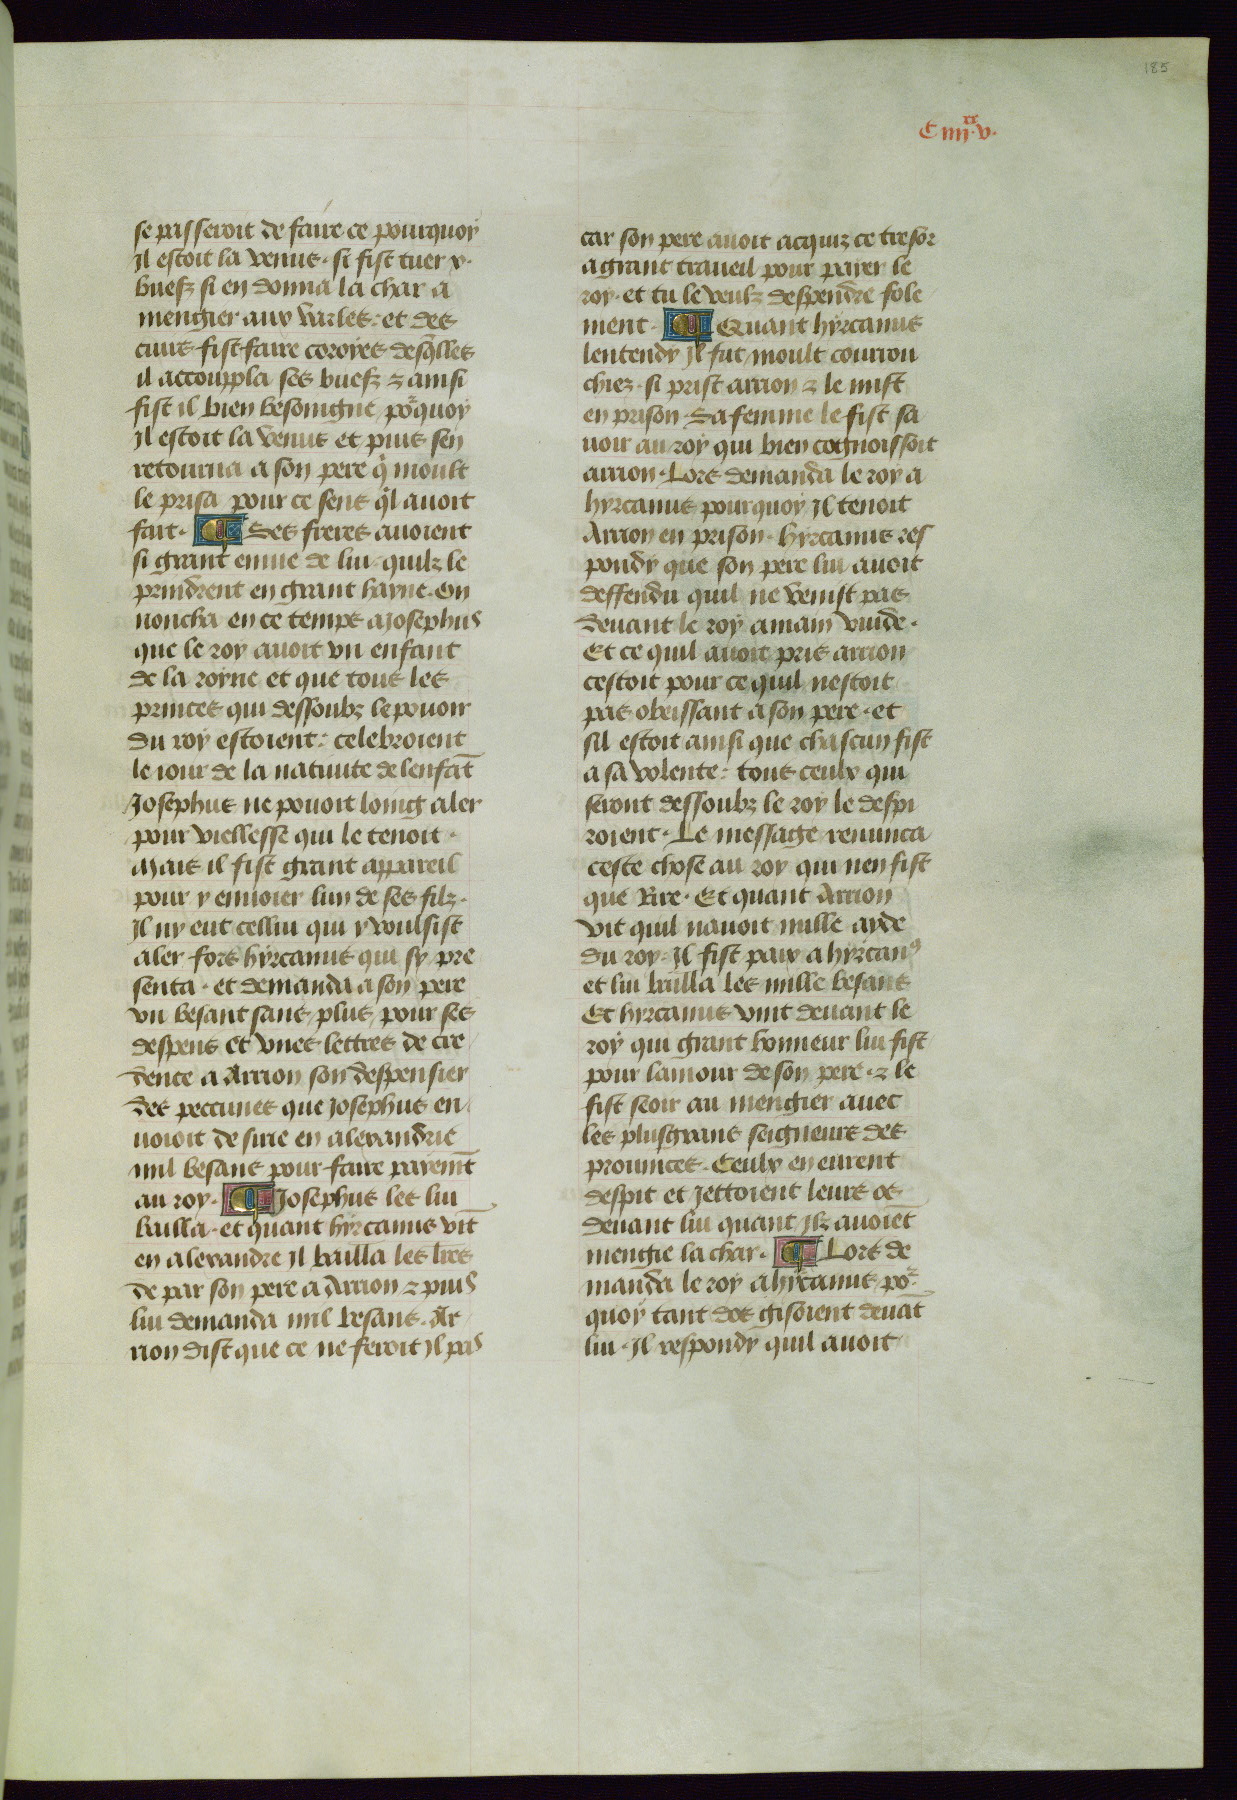 185
C iiii xx v.
se passeroit de faire ce pourquoy
il estoit la venus. si fist tuer x.
buefz si en donna la char a
mengier aux varles. et des
cuirs fist faire coroyes desqlles
il accouppla ses buefz ⁊ ainsi
fist il bien besoingne po⁠ʳquoy
Il estoit la venus et puis sen
retourna a son pere q̇ moult
le prisa pour ce sens q̇l auoit
fait. ¶ Ses freres auoient
si grant enuie de lui quilz le
prindrent en grant hayne. On
noncha en ce temps a Josephus
que le roy auoit vn enfant
de la royne et que tous les
princes qui dessoubz le pouoir
du roy estoient: celebroient
le iour de la natiuite de lenfāt
Josephus ne pouoit loing aler
pour viellesse qui le tenoit.
Mais il fist grant appareil
pour y enuoier lun de ses filz.
Il ny eut cellui qui y voulsist
aler fors hyrcanus qui sy pre
senta. et demanda a son pere
vn besant sans plus pour ses
despens et vnes lettres de cre
dence a Arrion son despensier
des peccunes que Josephus en
uoioit de sirie en alexandrie
mil besans pour faire paremt̄
au roy. ¶ Josephus les lui
bailla. et quant hyrcanus vīt
en alexandre il bailla les lr̄es
de par son pere a Arrion ⁊ puis
lui demanda mil besans. Ar
rion dist que ce ne feroit il pas
car son pere auoit acquiz ce tresor
a grant traueil pour paier le
roy. et tu le veulz despendre fole
ment. ¶ Quant hyrcanus
lentendy Il fut moult courrou
chiez. si prist arrion ⁊ le mist
en prison. Sa femme le fist sa
uoir au roy qui bien cognoissoit
arrion. Lors demanda le roy a
hyrcanus pourquoy Il tenoit
Arrion en prison. hyrcanus res
pondy que son pere lui auoit
deffendu quil ne venist pas
deuant le roy a main vuide.
Et ce quil auoit pris arrion
cestoit pour ce quil nestoit
pas obeissant a son pere. et
sil estoit ainsi que chascun fist
a sa volente: tous ceulx qui
seront dessoubz le roy le despi
roient. Le message renunca
ceste chose au roy qui nen fist
que Rire. Et quant Arrion
vit quil nauoit nulle ayde
du roy. Il fist paix a hyrcanꝰ
et lui bailla les mille besans
Et hyrcanus vint deuant le
roy qui grant honneur lui fist
pour lamour de son pere. ⁊ le
fist seoir au mengier auec
les plusgrans seigneurs des
prouinces. Ceulx en eurent
despit et Jettoient leurs os
deuant lui quant Ilz auoiēt
mengie la char. ¶ Lors de
manda le roy a hyrcanus po⁠ʳ
quoy tant dos gisoient deuāt
lui. Il respondy quil auoit